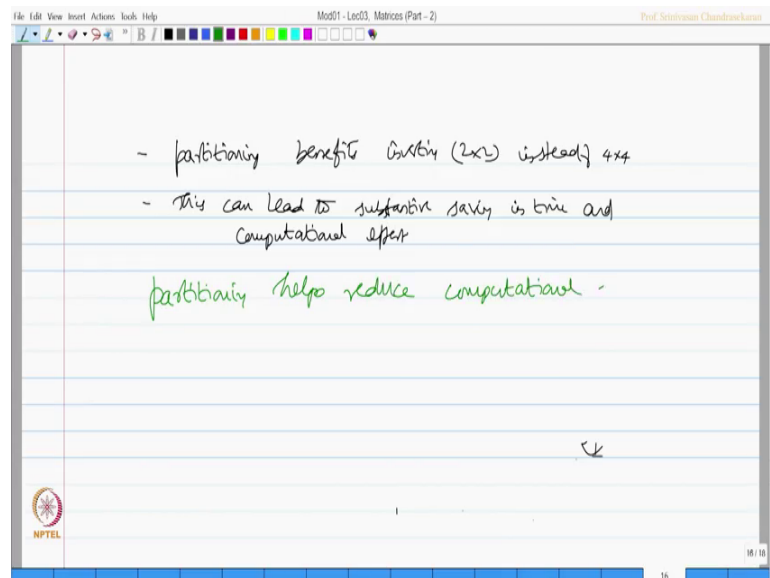 File Edit View Insert Actions Tools Help
Mod01 - Lec03, Matrices (Part - 2)
Prof. Srinivasan Chandrasekaran
B I
- partitioning benefits (2x2) instead of 4x4
- This can lead to substantive saving in time and
computational effort
partitioning helps reduce computational -
NPTEL
16 / 18
16